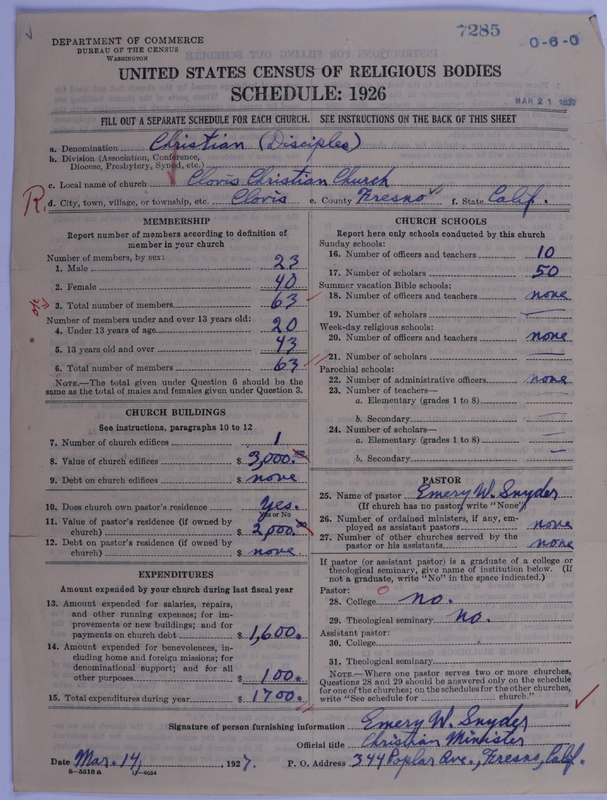 7285
0-6-0
DEPARTMENT OF COMMERCE
BUREAU OF THE CENSUS
WASHINGTON
UNITED STATES CENSUS OF RELIGIOUS BODIES
SCHEDULE: 1926
MAR 21 1927
FILL OUT A SEPARATE SCHEDULE FOR EACH CHURCH. SEE INSTRUCTIONS ON THE BACK OF THIS SHEET
a. Denomination Christian (Disciples)
b. Division (Association, Conference,
Diocese, Presbytery, Synod, etc.)
c. Local name of church Clovis Christian Church
R. d. City, town, village, or township, etc. Clovis e. County Fresno f. State Calif.
MEMBERSHIP
Report number of members according to definition of
member in your church
Number of members, by sex:
1. Male 23
2. Female 40
3. Total number of members 63
Number of members under and over 13 years old:
4. Under 13 years of age 20
5. 13 years old and over 43
6. Total number of members 63
NOTE.—The total given under Question 6 should be the
same as the total of males and females given under Question 3.
CHURCH BUILDINGS
See instructions, paragraphs 10 to 12
7. Number of church edifices 1
8. Value of church edifices $ 3,000.00
9. Debt on church edifices $ none
10. Does church own pastor's residence Yes.
Yes or No
11. Value of pastor's residence (if owned by
church) $ 2,000.00
12. Debt on pastor's residence (if owned by
church) $ none.
EXPENDITURES
Amount expended by your church during last fiscal year
13. Amount expended for salaries, repairs,
and other running expenses; for im-
provements or new buildings; and for
payments on church debt $ 1,600.
14. Amount expended for benevolences, in-
cluding home and foreign missions; for
denominational support; and for all
other purposes $ 100.
15. Total expenditures during year $ 1700.
CHURCH SCHOOLS
Report here only schools conducted by this church
Sunday schools:
16. Number of officers and teachers 10
17. Number of scholars 50
Summer vacation Bible schools:
18. Number of officers and teachers none
19. Number of scholars
Week-day religious schools:
20. Number of officers and teachers none
21. Number of scholars
Parochial schools:
22. Number of administrative officers none
23. Number of teachers—
a. Elementary (grades 1 to 8)
b. Secondary
24. Number of scholars—
a. Elementary (grades 1 to 8)
b. Secondary
PASTOR
25. Name of pastor Emery W. Snyder
(If church has no pastor, write "None")
26. Number of ordained ministers, if any, em-
ployed as assistant pastors none
27. Number of other churches served by the
pastor or his assistants none
If pastor (or assistant pastor) is a graduate of a college or
theological seminary, give name of institution below. (If
not a graduate, write "No" in the space indicated.)
Pastor:
28. College no.
29. Theological seminary no.
Assistant pastor:
30. College
31. Theological seminary
NOTE.—Where one pastor serves two or more churches,
Questions 28 and 29 should be answered only on the schedule
for one of the churches; on the schedules for the other churches,
write "See schedule for church."
Signature of person furnishing information Emery W. Snyder
Official title Christian Minister
Date Mar. 14, 1927. P. O. Address 344 Poplar Ave., Fresno, Calif.